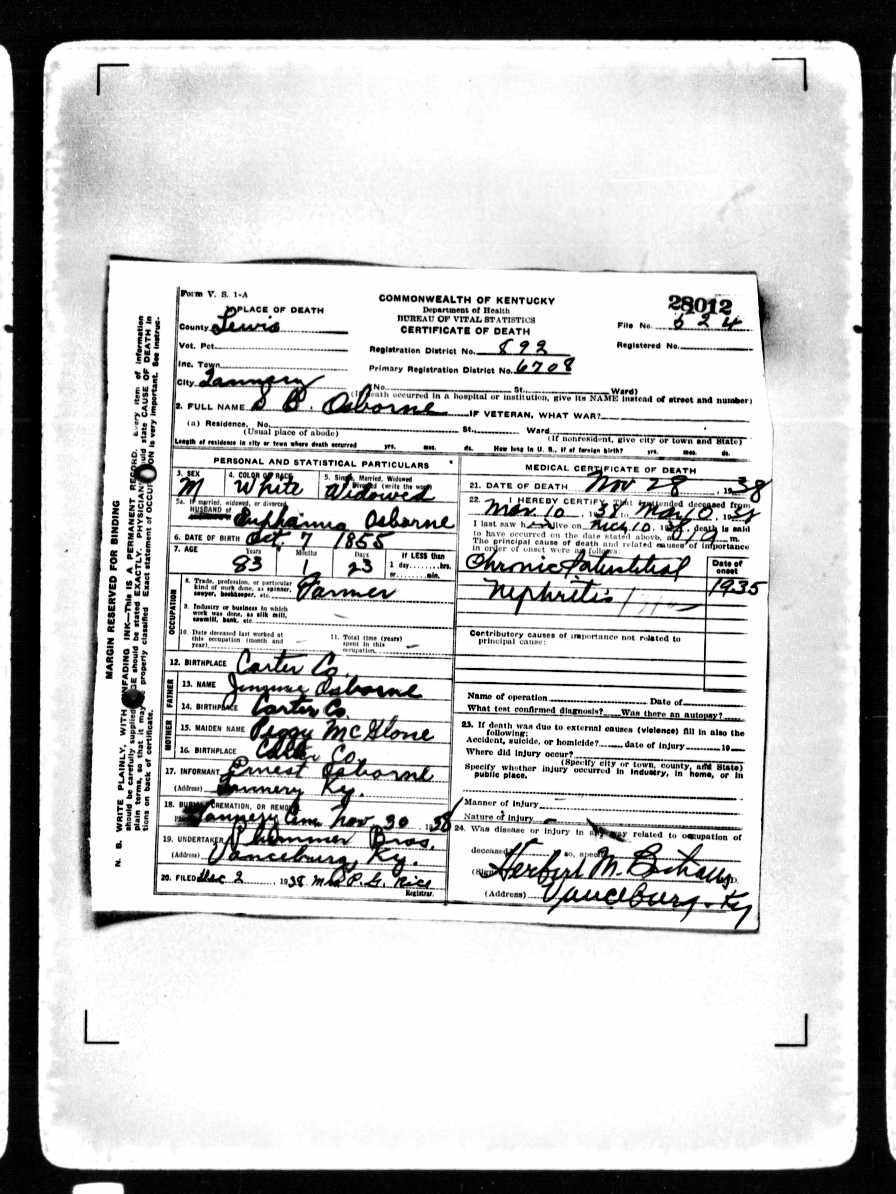 Form V. S. 1-A
COMMONWEALTH OF KENTUCKY
Department of Health
BUREAU OF VITAL STATISTICS
CERTIFICATE OF DEATH
28012
File No. 624
Registered No.
Registration District No. 892
Primary Registration District No. 6708
PLACE OF DEATH
County Lewis
Vot. Pct.
Inc. Town
City Tannery
(No. St. Ward)
death occurred in a hospital or institution, give its NAME instead of street and number)
2. FULL NAME S B. Osborne IF VETERAN, WHAT WAR?
(a) Residence. No. St. Ward
(Usual place of abode) (If nonresident, give city or town and State)
Length of residence in city or town where death occurred yrs. mos. ds. How long in U. S., if of foreign birth? yrs. mos. ds.
PERSONAL AND STATISTICAL PARTICULARS
3. SEX M
4. COLOR OR RACE White
5. Single, Married, Widowed
or Divorced (write the word) Widowed
5a. If married, widowed, or divorced
HUSBAND of Euphamia Osborne
6. DATE OF BIRTH Oct. 7 1855
7. AGE Years 83 Months 1 Days 23
If LESS than
1 day hrs.
or min.
OCCUPATION
8. Trade, profession, or particular
kind of work done, as spinner,
sawyer, bookkeeper, etc. Farmer
9. Industry or business in which
work was done, as silk mill,
sawmill, bank, etc.
10. Date deceased last worked at
this occupation (month and
year)
11. Total time (years)
spent in this
occupation
12. BIRTHPLACE Carter Co.
FATHER
13. NAME Osborne
14. BIRTHPLACE Carter Co.
MOTHER
15. MAIDEN NAME Peggy McGlone
16. BIRTHPLACE Carter Co.
17. INFORMANT Ernest Osborne
(Address) Tannery Ky.
18. BURIAL, CREMATION, OR REMOVAL
Tannery Cem. Nov. 30 1938
19. UNDERTAKER Plummer Bros.
(Address) Vanceburg, Ky.
20. FILED Dec 2, 1938 Mrs P. G. Rice
Registrar.
MEDICAL CERTIFICATE OF DEATH
21. DATE OF DEATH Nov 28, 1938
22. I HEREBY CERTIFY, That I attended deceased from
Mar. 10, 1938 to May 10, 1938
I last saw h alive on 10, 1938, death is said
to have occurred on the date stated above, at m.
The principal cause of death and related causes of importance
in order of onset were as follows:
Date of
onset
Chronic Interstitial
Nephritis 1935
Contributory causes of importance not related to
principal cause:
Name of operation Date of
What test confirmed diagnosis? Was there an autopsy?
23. If death was due to external causes (violence) fill in also the
following:
Accident, suicide, or homicide? date of injury 19
Where did injury occur?
(Specify city or town, county, and State)
Specify whether injury occurred in industry, in home, or in
public place.
Manner of injury
Nature of injury
24. Was disease or injury in any way related to occupation of
deceased? so, specify
Herbert M.
(Address) Vanceburg, Ky
MARGIN RESERVED FOR BINDING
N. B. WRITE PLAINLY, WITH UNFADING INK—This IS A PERMANENT RECORD. Every item of information
should be carefully supplied. AGE should be stated EXACTLY. PHYSICIANS should state CAUSE OF DEATH in
plain terms, so that it may be properly classified. Exact statement of OCCUPATION is very important. See instruc-
tions on back of certificate.